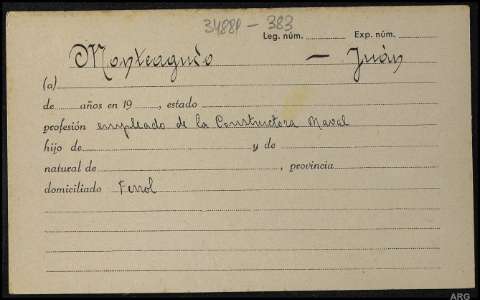 34881 - 383
Leg. núm. Exp. núm.
Monteagudo — Juán
(a)
de años en 19 , estado
profesión empleado de la Constructora Naval
hijo de y de
natural de , provincia
domiciliado Ferrol
ARG